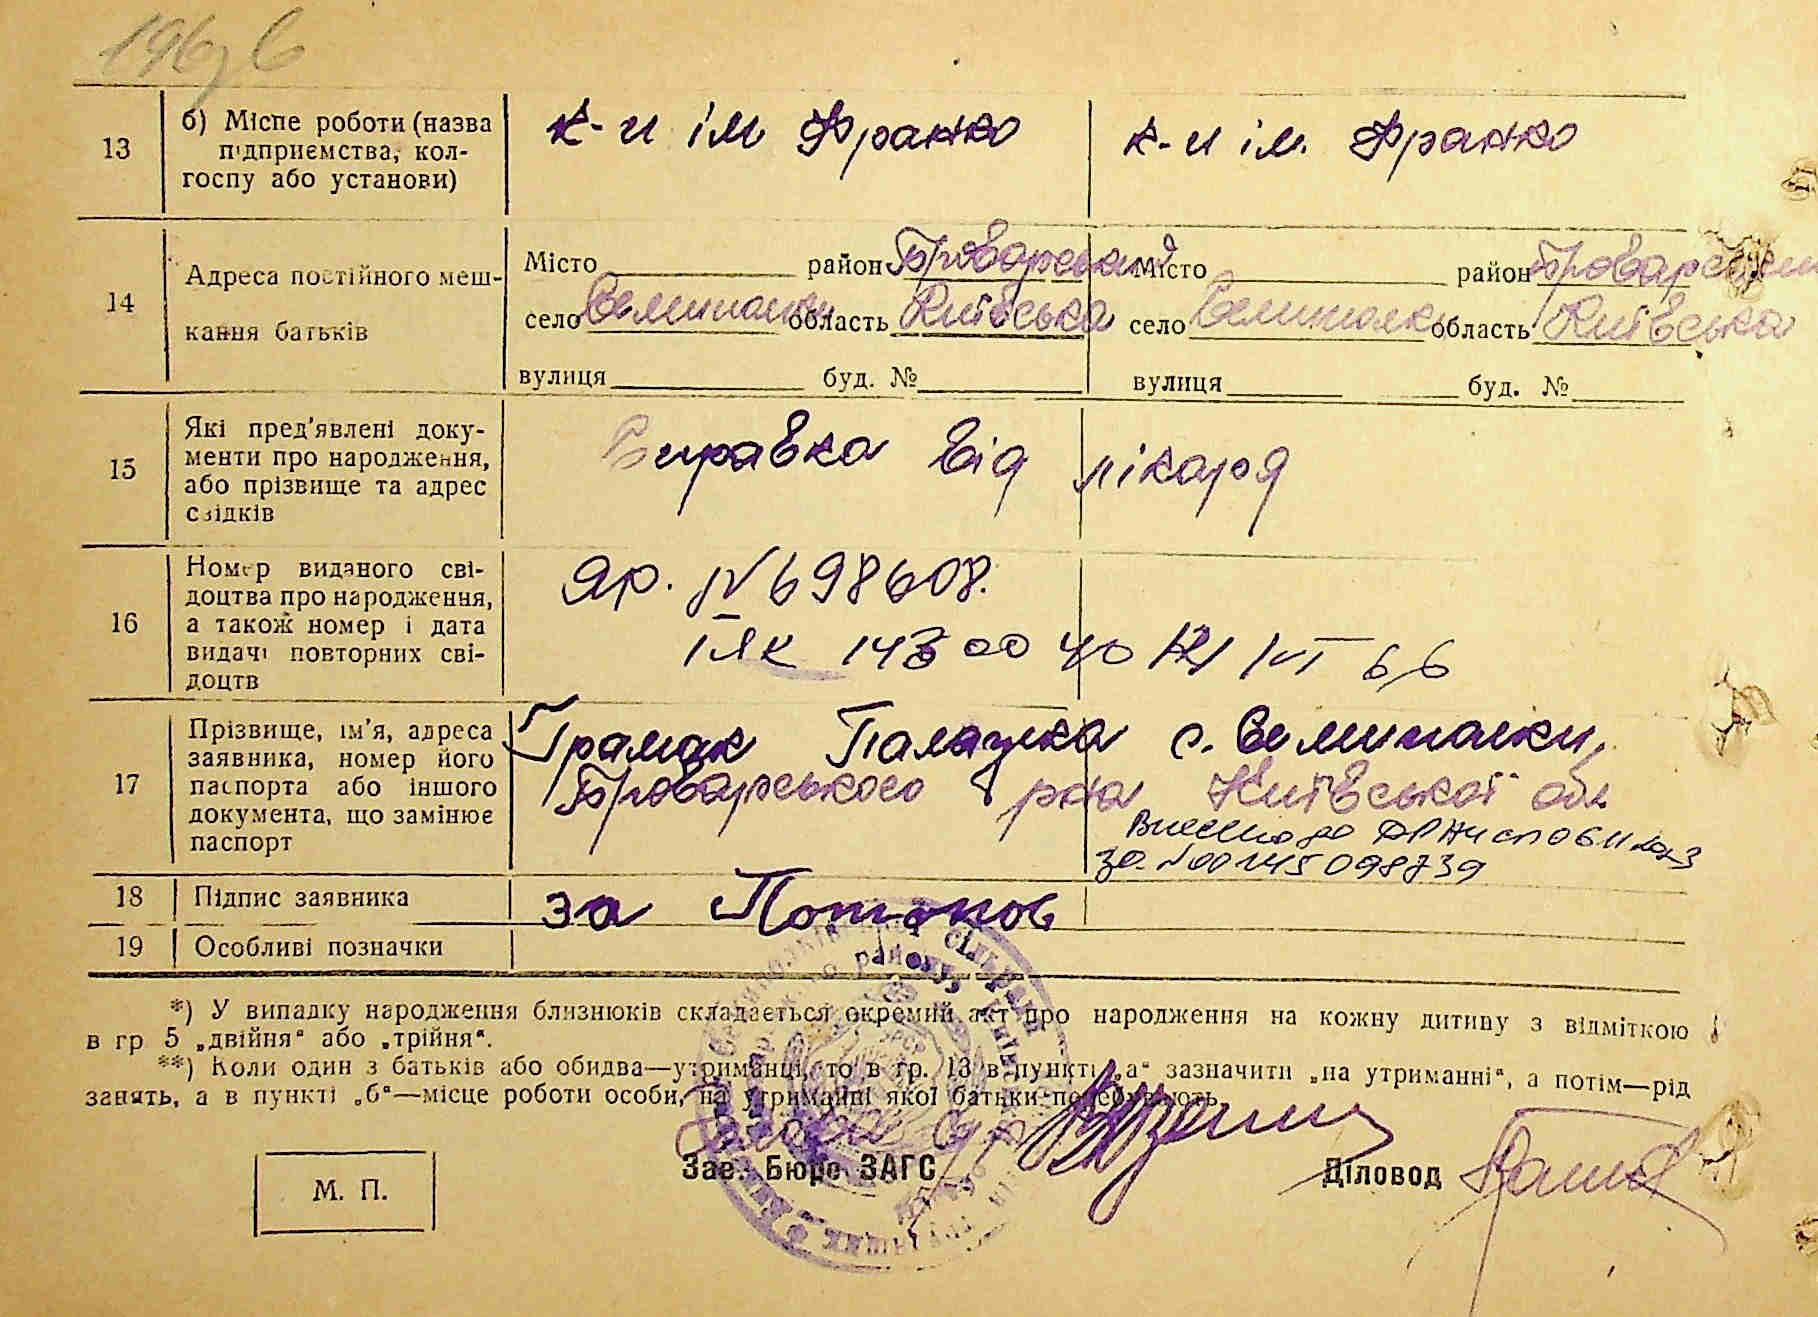 13
б) Місце роботи (назва
підприємства, кол-
госпу або установи)
к-п ім Франко
к-п ім. Франко
14
Адреса постійного меш-
кання батьків
Місто район Броварський
село Семиполки область Київська
вулиця буд. №
Місто район Броварський
село Семиполки область Київська
вулиця буд. №
15
Які пред'явлені доку-
менти про народження,
або прізвище та адрес
свідків
Справка від лікаря
16
Номер виданого сві-
доцтва про народження,
а також номер і дата
видачі повторних сві-
доцтв
ЯР. № 698608.
17
Прізвище, ім'я, адреса
заявника, номер його
паспорта або іншого
документа, що замінює
паспорт
с. Семиполки,
Броварського р-на Київської обл
Внесено до
за №00145098739
18
Підпис заявника
за Потапов
19
Особливі позначки
*) У випадку народження близнюків складається окремий акт про народження на кожну дитину з відміткою
в гр 5 „двійня“ або „трійня“.
**) Коли один з батьків або обидва—утриманці, то в гр. 13 в пункті „а“ зазначити „на утриманні“, а потім—рід
занять, а в пункті „б“—місце роботи особи, на утриманні якої батьки перебувають.
М. П.
Зав. Бюро ЗАГС
Діловод